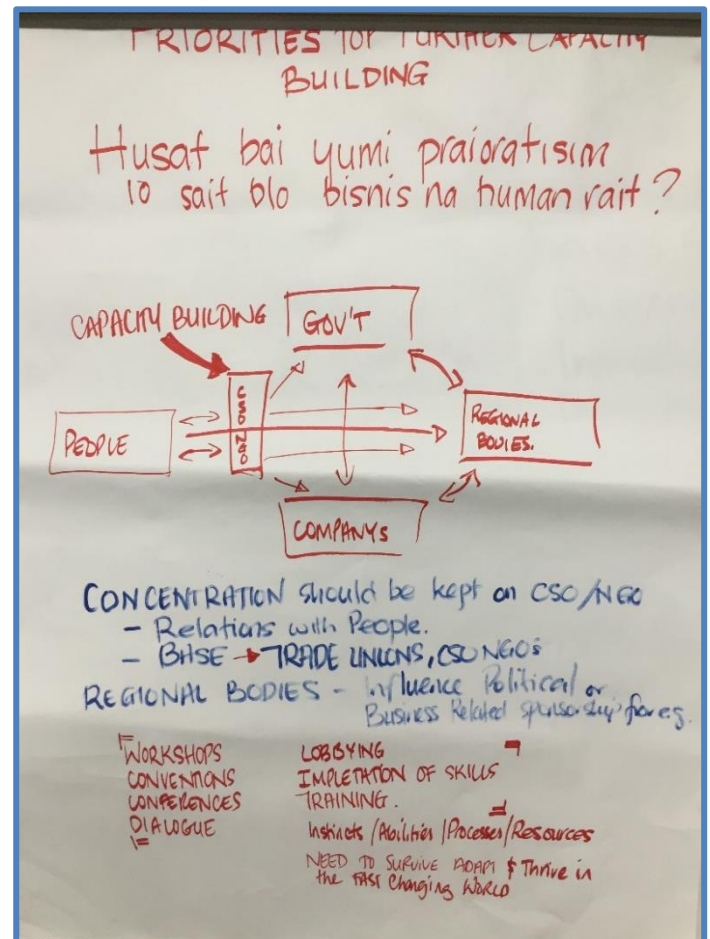 PRIORITIES for FURTHER CAPACITY
BUILDING
Husat bai yumi praioratisim
lo sait blo bisnis na human rait?
CAPACITY BUILDING
GOV'T
CSO NGO
PEOPLE
REGIONAL
BODIES.
COMPANYS
CONCENTRATION should be kept on CSO/NGO
- Relations with People.
- BASE → TRADE UNIONS, CSO NGOs
REGIONAL BODIES - Influence Political or
Business Related sponsorship for eg.
WORKSHOPS
CONVENTIONS
CONFERENCES
DIALOGUE
LOBBYING
IMPLETATION OF SKILLS
TRAINING.
Instincts / Abilities / Processes / Resources
NEED TO SURVIVE ADAPT & Thrive in
the FAST Changing WORLD